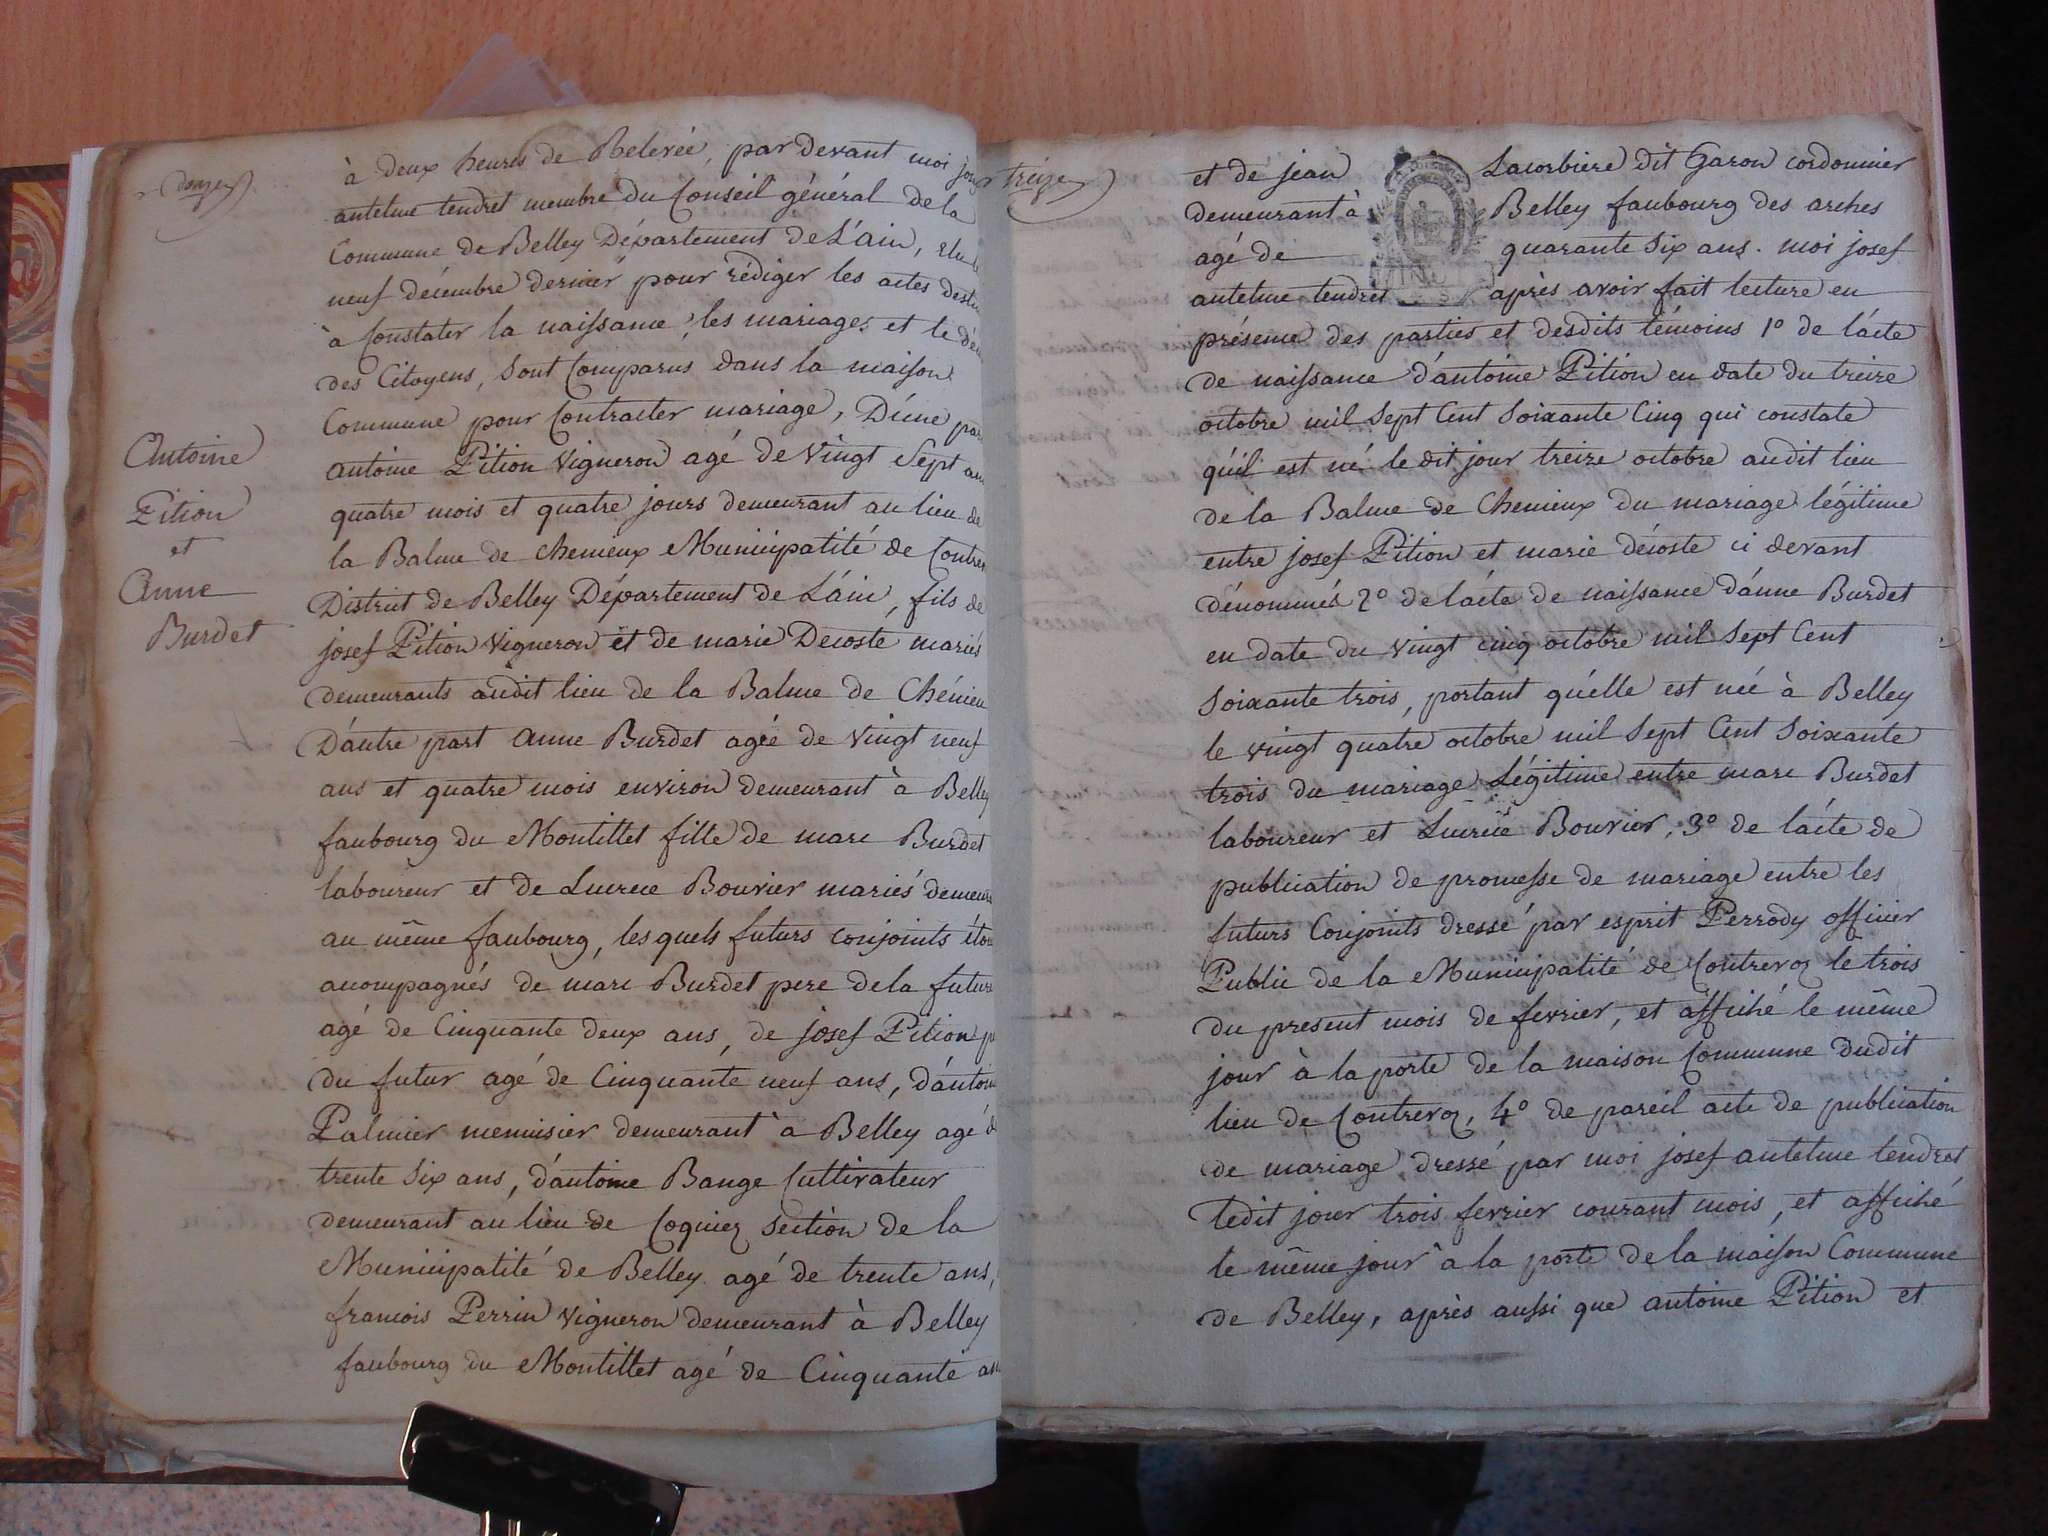 douze
à deux heures de Relevée, par devant moi
antelme tendret membre du Conseil général de la
Commune de Belley Département de L'ain,
neuf décembre dernier pour rédiger les actes
à Constater la naissance, les mariages et le
des Citoyens, sont Comparus dans la maison
Commune pour Contracter mariage, D'une
Antoine
Pition
et
Anne
Burdet
antoine Pition Vigneron agé de Vingt Sept
quatre mois et quatre jours demeurant au lieu de
la Balme de chemieux Municipalité de
District de Belley Département de L'ain, fils de
josef Pition Vigneron et de marie Decoste mariés
demeurants audit lieu de la Balme de
D'autre part anne Burdet agée de Vingt neuf
ans et quatre mois environ demeurant à Belley
faubourg du Montillet fille de marc Burdet
laboureur et de Lucrece Bouvier mariés
au même faubourg, les quels futurs conjoints
acompagnés de marc Burdet pere de la future
agé de Cinquante deux ans, de josef Pition
du futur agé de Cinquante neuf ans,
Palmier menuisier demeurant à Belley agé
trente Six ans, d'antoine Bange Cultivateur
demeurant au lieu de Coguiez section de la
Municipalité de Belley agé de trente ans,
francois Perrin Vigneron demeurant à Belley
faubourg du Montillet agé de Cinquante
treize
et de jean Lacorbiere dit Garon cordonnier
demeurant à Belley faubourg des arches
agé de quarante Six ans. moi josef
antelme tendret après avoir fait lecture en
présence des parties et desdits témoins 1º de l'acte
de naissance d'antoine Pition en date du treize
octobre mil Sept Cent Soixante Cinq qui constate
qu'il est né le dit jour treize octobre audit lieu
de la Balme de Chemieux du mariage légitime
entre josef Pition et marie décoste ci devant
dénommés 2º de l'acte de naissance d'anne Burdet
en date du Vingt cinq octobre mil Sept Cent
Soixante trois, portant qu'elle est née à Belley
le vingt quatre octobre mil Sept Cent Soixante
trois du mariage Légitime entre marc Burdet
laboureur et Lucrece Bouvier, 3º de l'acte de
publication de promesse de mariage entre les
futurs Conjoints dressé par esprit Perrody officier
Public de la Municipalité de Contrevoz le trois
du present mois de fevrier, et affiché le même
jour à la porte de la maison Commune dudit
lieu de Contrevoz, 4º de pareil acte de publication
de mariage dressé par moi josef antelme tendret
ledit jour trois fevrier courant mois, et affiché
le même jour à la porte de la maison Commune
de Belley, après aussi que antoine Pition et